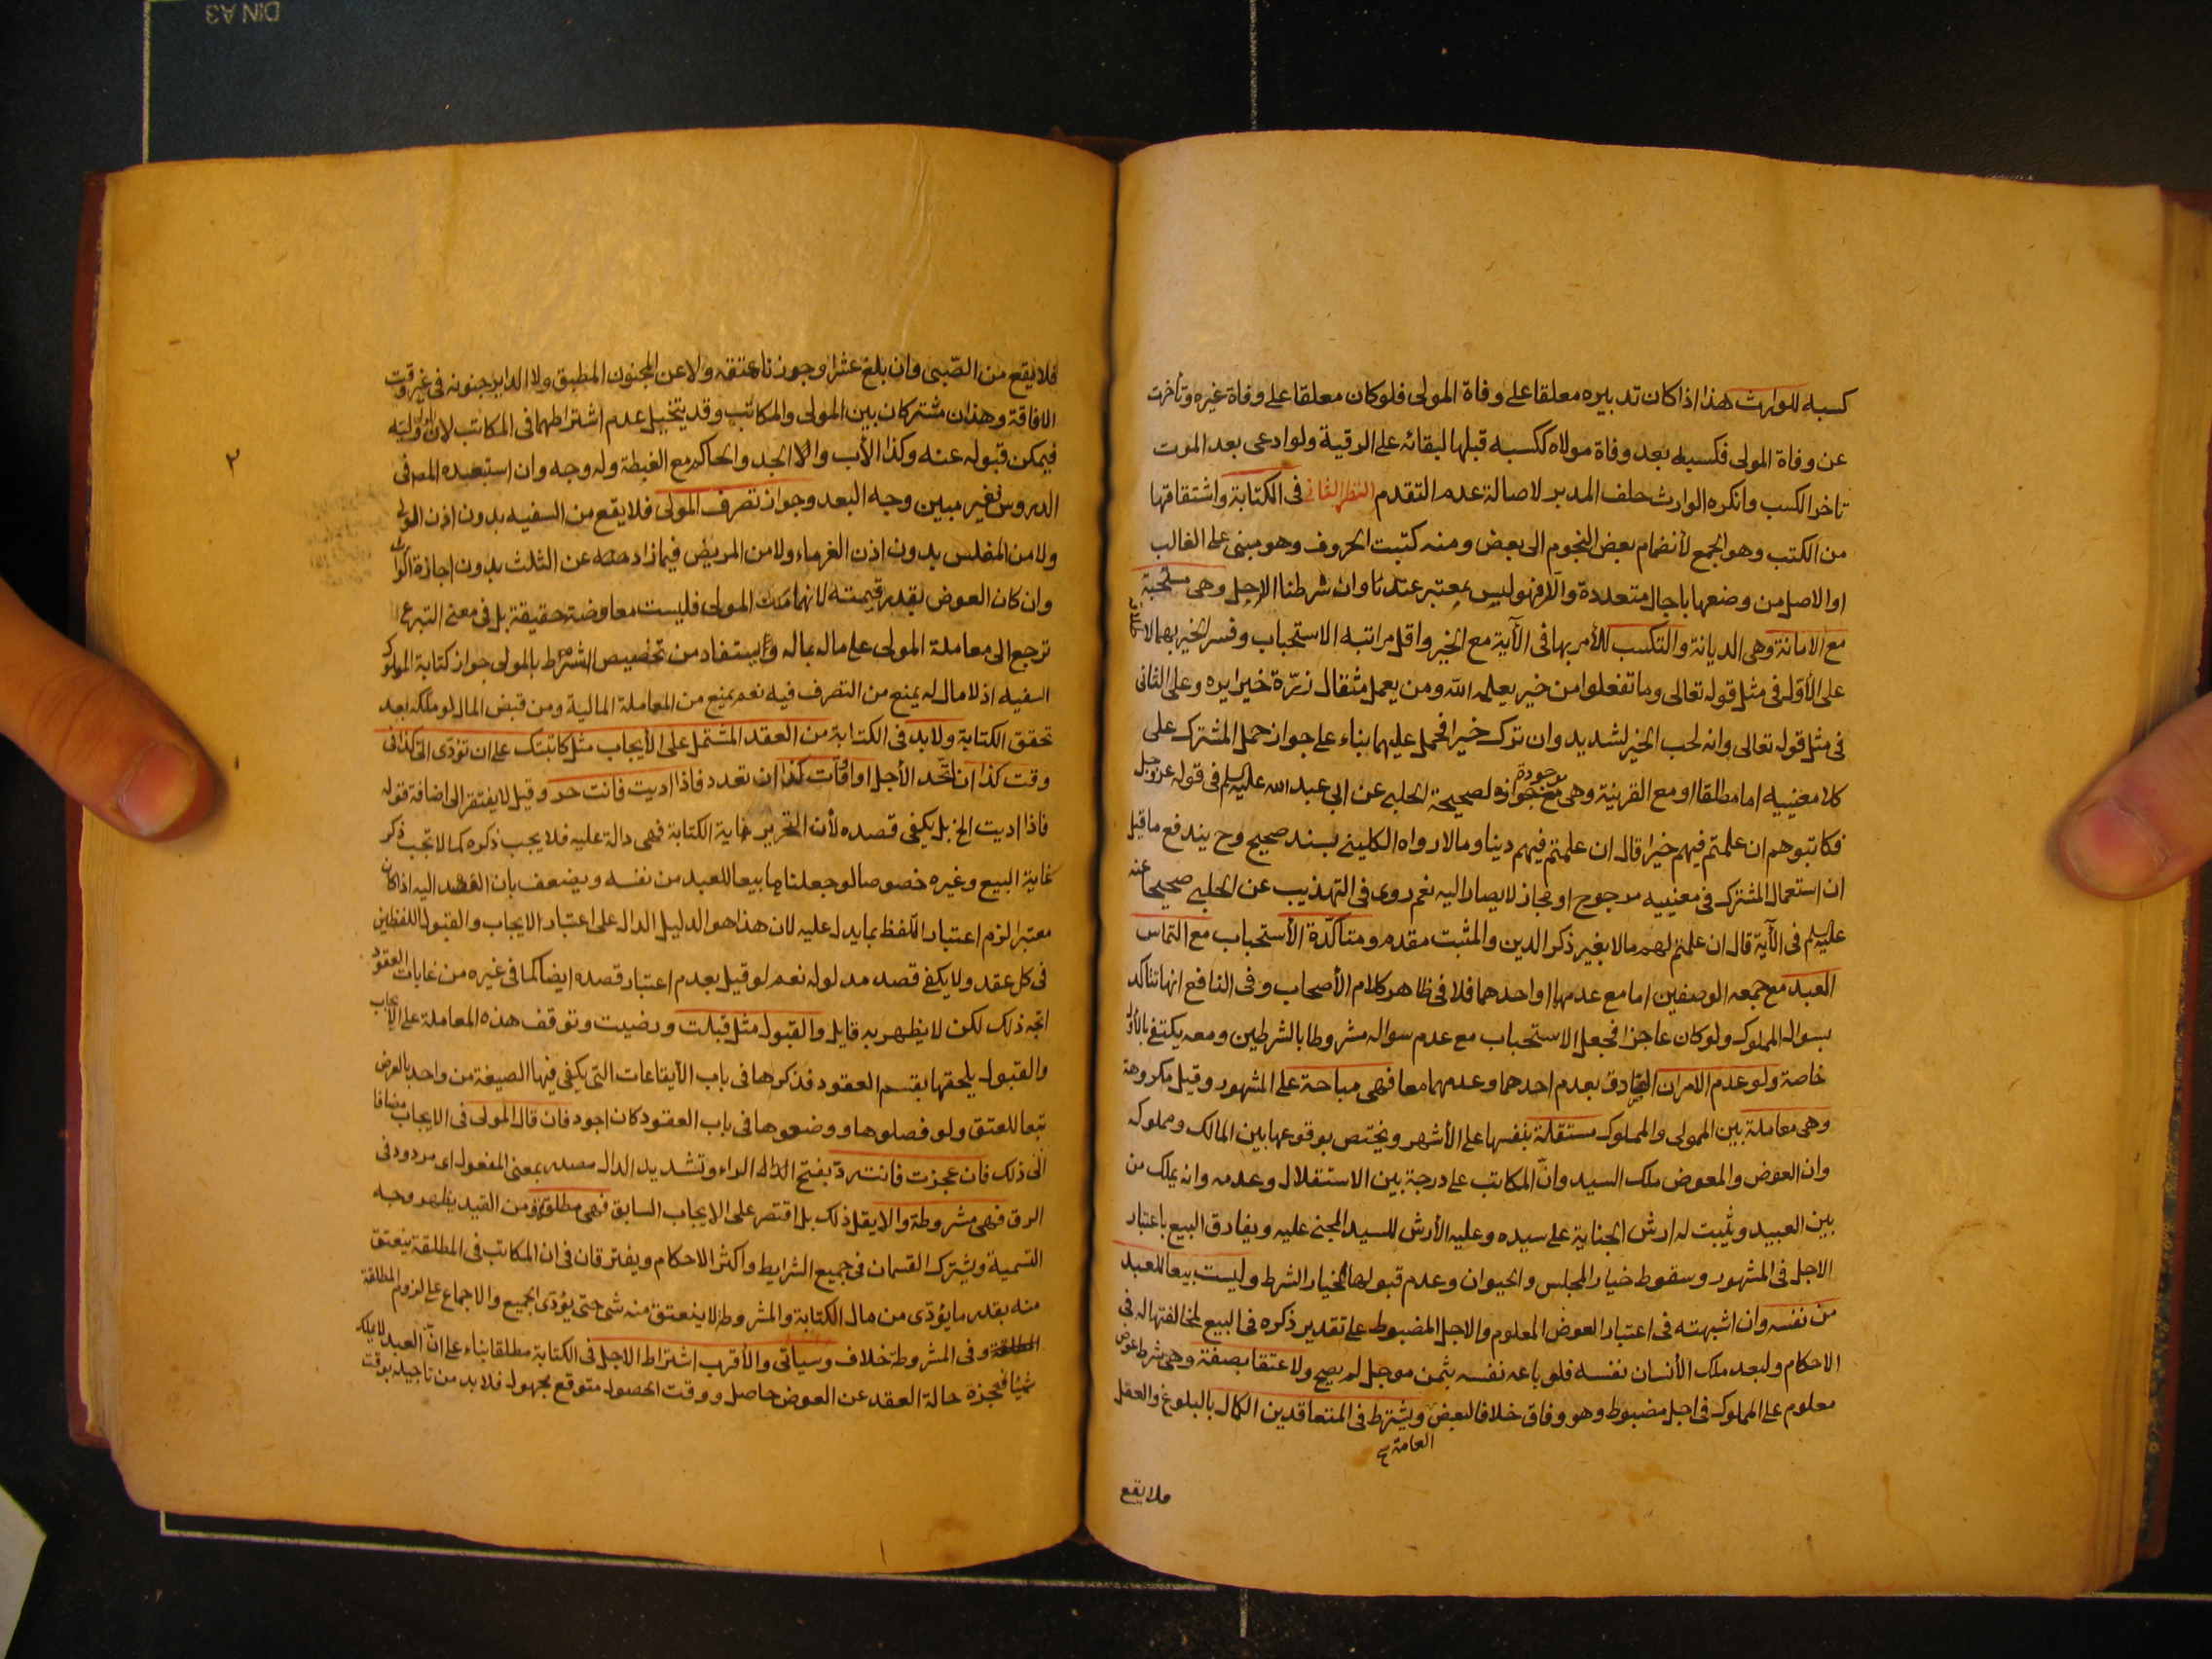 كسبه للوارث هذا اذا كان تدبيره معلقا على وفاة المولى فلو كان معلقا على وفاة غيره وتأخرت
عن وفاة المولى فكسبه بعد وفاة مولاه ككسبه قبلها لبقائه على الرقية ولو ادعى بعد الموت
تاخر الكسب وانكره الوارث حلف المدبر لاصالة عدم التقدم النظر الثاني فى الكتابة واشتقاقها
من الكتب وهو الجمع لأنضمام بعض النجوم الى بعض ومنه كتبت الحروف وهو مبنى على الغالب
او الاصل من وضعها باجال متعددة والا فهو ليس بمعتبر عندنا وان شرطنا الاجل وهى مستحبة
مع الامانة وهى الديانة والتكسب للأمر بها فى الآية مع الخير واقل مراتبه الاستحباب وفسر الخير بهما لاطلاقه
على الأول فى مثل قوله تعالى وما تفعلوا من خير يعلمه الله ومن يعمل مثقال ذرّة خيرا يره وعلى الثانى
فى مثل قوله تعالى وانه لحب الخير لشديد وان ترك خيرا فحمل عليهما بناء على جواز حمل المشترك على
كلا معنييه اما مطلقا او مع القرينة وهى موجودة لصحيحة الحلبى عن ابى عبد الله عليه السلم فى قوله عز وجل
فكاتبوهم ان علمتم فيهم خيرا قال ان علمتم فيهم دينا ومالا رواه الكلينى بسند صحيح وح يندفع ما قيل
ان استعمال المشترك فى معنييه مرجوح او مجاز لا يصار اليه نعم روى فى التهذيب عن الحلبى صحيحا عنه
عليه السلم فى الآية قال ان علمتم لهم مالا بغير ذكر الدين والمثبت مقدم ومتأكّدة الأستحباب مع التماس
العبد مع جمعه الوصفين اما مع عدمهما او احدهما فلا فى ظاهر كلام الأصحاب وفى النافع انها تتاكد
بسوال المملوك ولو كان عاجزا فجعل الاستحباب مع عدم سواله مشروطا بالشرطين ومعه يكتفى بالأول
خاصة ولو عدم الامران الصادق بعدم احدهما وعدمهما معا فهى مباحة على المشهور وقيل مكروهة
وهى معاملة بين المولى والمملوك مستقلة بنفسها على الأشهر ويختص بوقوعها بين المالك ومملوكه
وان العوض والمعوض ملك السيد وانّ المكاتب على درجة بين الاستقلال وعدمه وانه يملك من
بين العبيد ويثبت له ارش الجناية على سيده وعليه الأرش للسيد المجنى عليه ويفارق البيع باعتبار
الاجل فى المشهور وسقوط خيار المجلس والحيوان وعدم قبولها لخيار الشرط وليست بيعا للعبد
من نفسه وان اشبهته فى اعتبار العوض المعلوم والاجل المضبوط على تقدير ذكره فى البيع لمخالفتها له فى
الاحكام ولبعد ملك الأنسان نفسه فلو باعه نفسه بثمن موجل لم يصح ولا عتقا بصفة وهى شرط عوض
معلوم على المملوك فى اجل مضبوط وهو وفاق خلافا لبعض ويشترط فى المتعاقدين الكمال بالبلوغ والعقل
العامة
فلا يقع
فلا يقع من الصّبى وان بلغ عشرا وجوزنا عتقه ولا عن المجنون المطبق ولا الداير جنونه فى غير وقت
الافاقة وهذان مشتركان بين المولى والمكاتب وقد يتخيل عدم اشتراطهما فى المكاتب لان المولى وليّه
فيمكن قبوله عنه وكذا الأب والجد والحاكم مع الغبطة وله وجه وان استبعده المصنف فى
الدروس بغير مبين وجه البعد وجواز تصرف المولى فلا يقع من السفيه بدون اذن الولى
ولا من المفلس بدون اذن الغرماء ولا من المريض فيما زاد منه عن الثلث بدون اجازة الوارث
وان كان العوض بقدر قيمته لانهما ملك المولى فليست معاوضة حقيقة بل فى معنى التبرع
ترجع الى معاملة المولى على ماله بماله ويستفاد من تخصيص الشرط بالمولى جواز كتابة المملوك
السفيه اذ لا مال له يمنع من التصرف فيه نعم يمنع من المعاملة المالية ومن قبض المال لو ملكه بعد
تحقق الكتابة ولا بد فى الكتابة من العقد المشتمل على الأيجاب مثل كاتبتك على ان تؤدّى الىّ كذا فى
وقت كذا ان اتّحد الأجل او اوقات كذا ان تعدد فاذا اديت فانت حر وقيل لا يفتقر الى اضافة قوله
فاذا اديت الخ بل يكفى قصده لأن التحرير غاية الكتابة فهى دالة عليه فلا يجب ذكره كما لا تجب ذكر
غاية البيع وغيره خصوصا لو جعلناها بيعا للعبد من نفسه ويضعف بان القصد اليه اذا كان
معتبرا لزم اعتبار اللّفظ بما يدل عليه لان هذا هو الدليل الدال على اعتبار الايجاب والقبول اللفظيين
فى كل عقد ولا يكفى قصد مدلوله نعم لو قيل بعدم اعتبار قصده ايضا كما فى غيره من غايات العقود
اتجه ذلك لكن لا يظهر به قايل والقبول مثل قبلت ورضيت وتوقف هذه المعاملة على الايجاب
والقبول يلحقها بقسم العقود فذكرها فى باب الأيقاعات التى يكفى فيها الصيغة من واحد بالعرض
تبعا للعتق ولو فصلوها ووضعوها فى باب العقود كان اجود فان قال المولى فى الايجاب مضافا
الى ذلك فان عجزت فانت ردّ بفتح الراء وتشديد الدال مصدر بمعنى المفعول اى مردود فى
الرق فهى مشروطة والا يقل ذلك بل اقتصر على الايجاب السابق فهى مطلقة ومن القيد يظهر وجه
التسمية ويشترك القسمان فى جميع الشرايط واكثر الاحكام ويفترقان فى ان المكاتب فى المطلقة ينعتق
منه بقدر ما يؤدّى من مال الكتابة والمشروطة لا ينعتق منه شى حتى يؤدّى الجميع والاجماع على لزوم المطلقة
وفى المشروطة خلاف وسيأتى والأقرب اشتراط الاجل فى الكتابة مطلقا بناء على انّ العبد لا يملك
شيئا فعجزه حالة العقد عن العوض حاصل ووقت الحصول متوقع مجهول فلا بد من تاجيله بوقت
٢